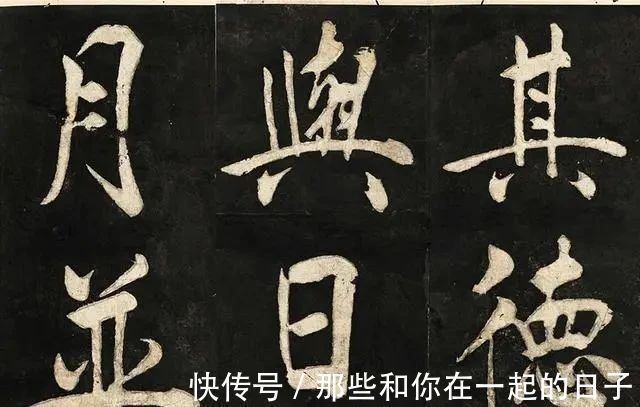 其德
與日
月並
快传号 / 那些和你在一起的日子